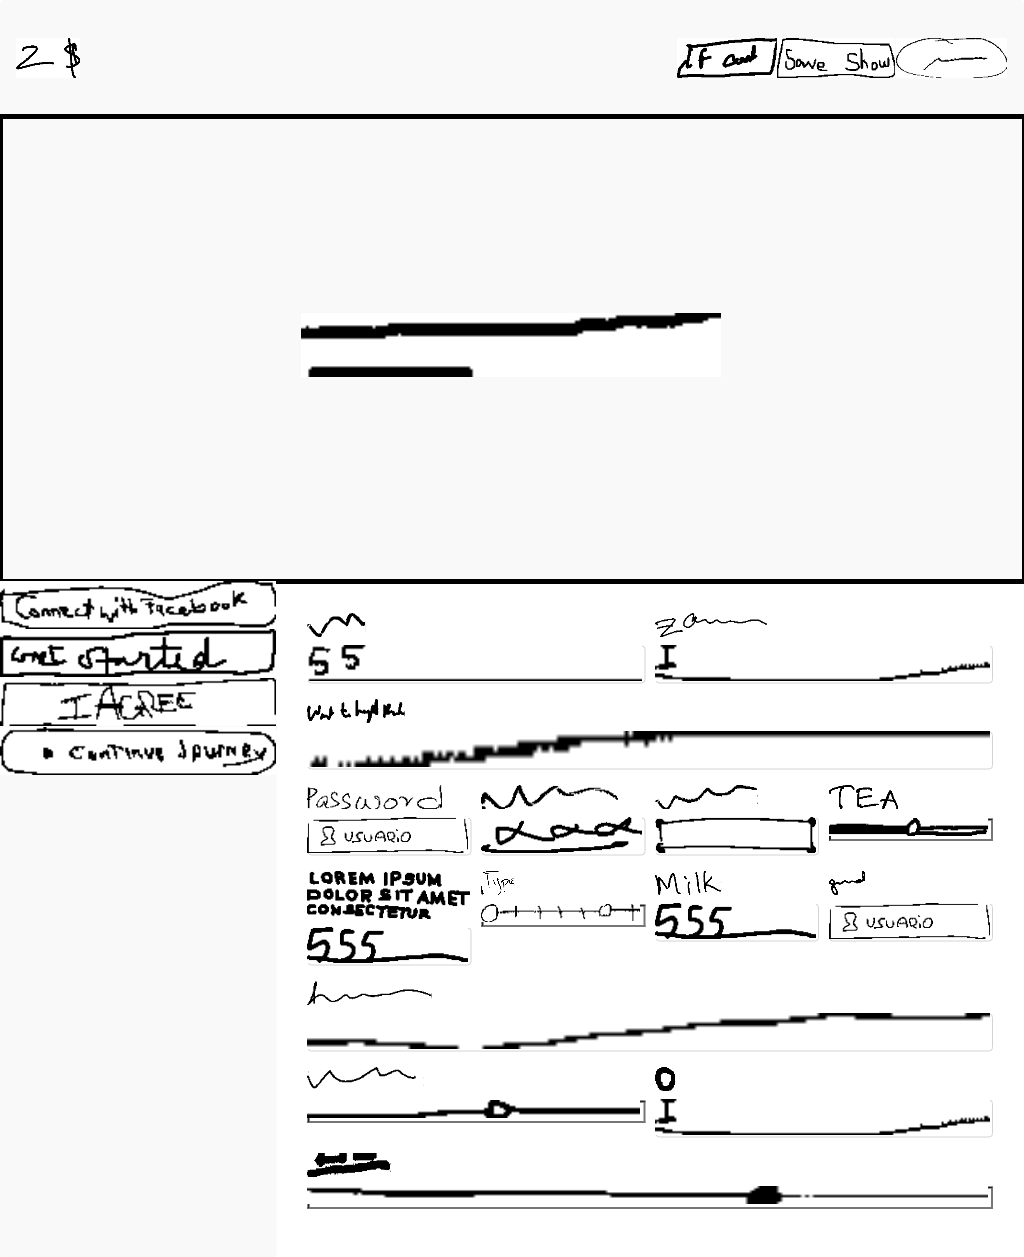 2 $
Save Show
Connect with Facebook
Get Started
I AGREE
Continue Journey
55
I
Password
TEA
USUARIO
LOREM IPSUM
DOLOR SIT AMET
CONSECTETUR
Type
Milk
good
555
555
USUARIO
O
I